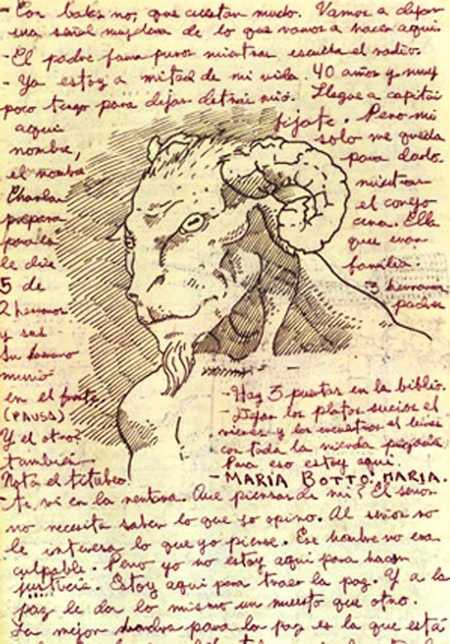 - Con balas no, que cuestan mucho. Vamos a dejar
una señal muy clara de lo que vamos a hacer aquí.
- El padre fuma puros mientras escucha el radio.
- Ya estoy a mitad de mi vida. 40 años y muy
poco tengo para dejar detrás mío. Llegué a capitán
fijate. Pero mi
aqui solo me queda
nombre, para darlo.
el nombre mientras
Charlan el conejo
prepara cena. Ella
para la que eran
le dice familia.
5 de 3 hermanas
2 hermanos padres
y sus
Su hermano
murió
en el frente
(PAUSA)
Y el otro?
también
Nota el titubeo
- Hay 3 puertas en la biblio.
- Dejan los platos sucios el
viernes y los encuentras el lunes
con toda la mierda
Para eso estoy aqui.
- MARIA BOTTO. MARIA.
- te vi en la Que piensas de mi? El señor
no necesita saber lo que yo opino. Al señor no
le interesa lo que yo piense. Ese hombre no era
culpable. Pero yo no estoy aquí para hacer
justicia. Estoy aquí para traer la paz. Y a la
paz le da lo mismo un muerto que otro.
La mejor para la paz es la que está